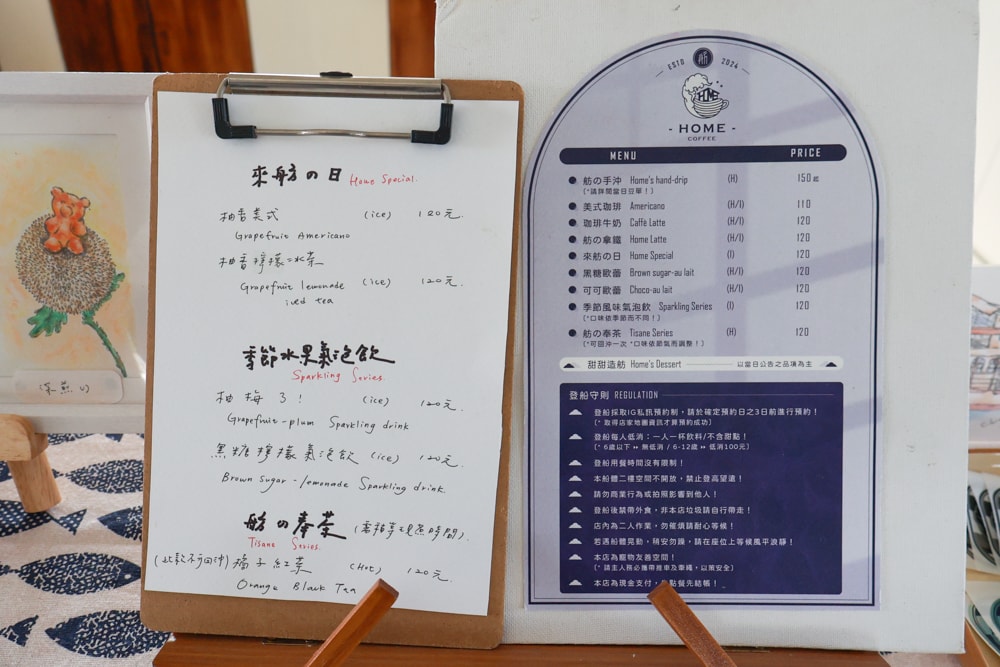 來舫の日 Home Special.
柚香美式 (ice) 120元.
Grapefruit Americano
柚香檸檬冰茶
Grapefruit lemonade (ice) 120元.
iced tea
季節水果氣泡飲
Sparkling Series.
柚梅了! (ice) 120元.
Grapefruit-plum Sparkling drink
黑糖檸檬氣泡飲 (ice) 120元.
Brown Sugar-lemonade Sparkling drink.
舫の奉茶 (需稍等現煮時間).
Tisane Series.
(此款不可回沖) 橘子紅茶 (Hot) 120元.
Orange Black Tea
ESTD 舫 2024
HOME
- HOME -
COFFEE
MENU PRICE
舫の手沖 Home's hand-drip (H) 150起
(*請詳閱當日豆單!)
美式咖啡 Americano (H/I) 110
咖啡牛奶 Caffè Latte (H/I) 120
舫の拿鐵 Home Latte (H/I) 120
來舫の日 Home Special (I) 120
黑糖歐蕾 Brown sugar-au lait (H/I) 120
可可歐蕾 Choco-au lait (H/I) 120
季節風味氣泡飲 Sparkling Series (I) 120
(*口味依季節而不同!)
舫の奉茶 Tisane Series (H) 120
(*可回沖一次 *口味依節氣而調整!)
甜甜造舫 Home's Dessert 以當日公告之品項為主
登船守則 REGULATION
登船採取IG私訊預約制,請於確定預約日之3日前進行預約!
(* 取得店家地圖資訊才算預約成功)
登船每人低消:一人一杯飲料/不含甜點!
(* 6歲以下 ↦ 無低消 / 6-12歲 ↦ 低消100元)
登船用餐時間沒有限制!
本船體二樓空間不開放,禁止登高望遠!
請勿商業行為或拍照影響到他人!
登船後禁帶外食,非本店垃圾請自行帶走!
店內為二人作業,勿催煩請耐心等候!
若遇船體晃動,稍安勿躁,請在座位上等候風平浪靜!
本店為寵物友善空間!
(* 請主人務必攜帶推車及牽繩,以策安全)
本店為現金支付, 點餐先結帳!